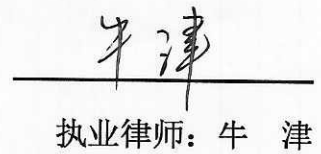 牛津
执业律师：牛　津